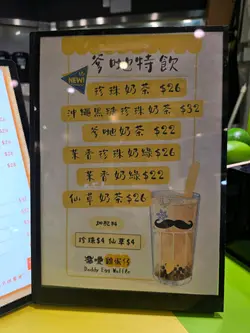 IS NEW!
爹哋特飲
珍珠奶茶 $26
沖繩黑糖珍珠奶茶 $32
爹哋奶茶 $22
茉香珍珠奶綠 $26
茉香奶綠 $22
仙草奶茶 $26
加配料
珍珠$4 仙草$4
Daddy Egg Waffle